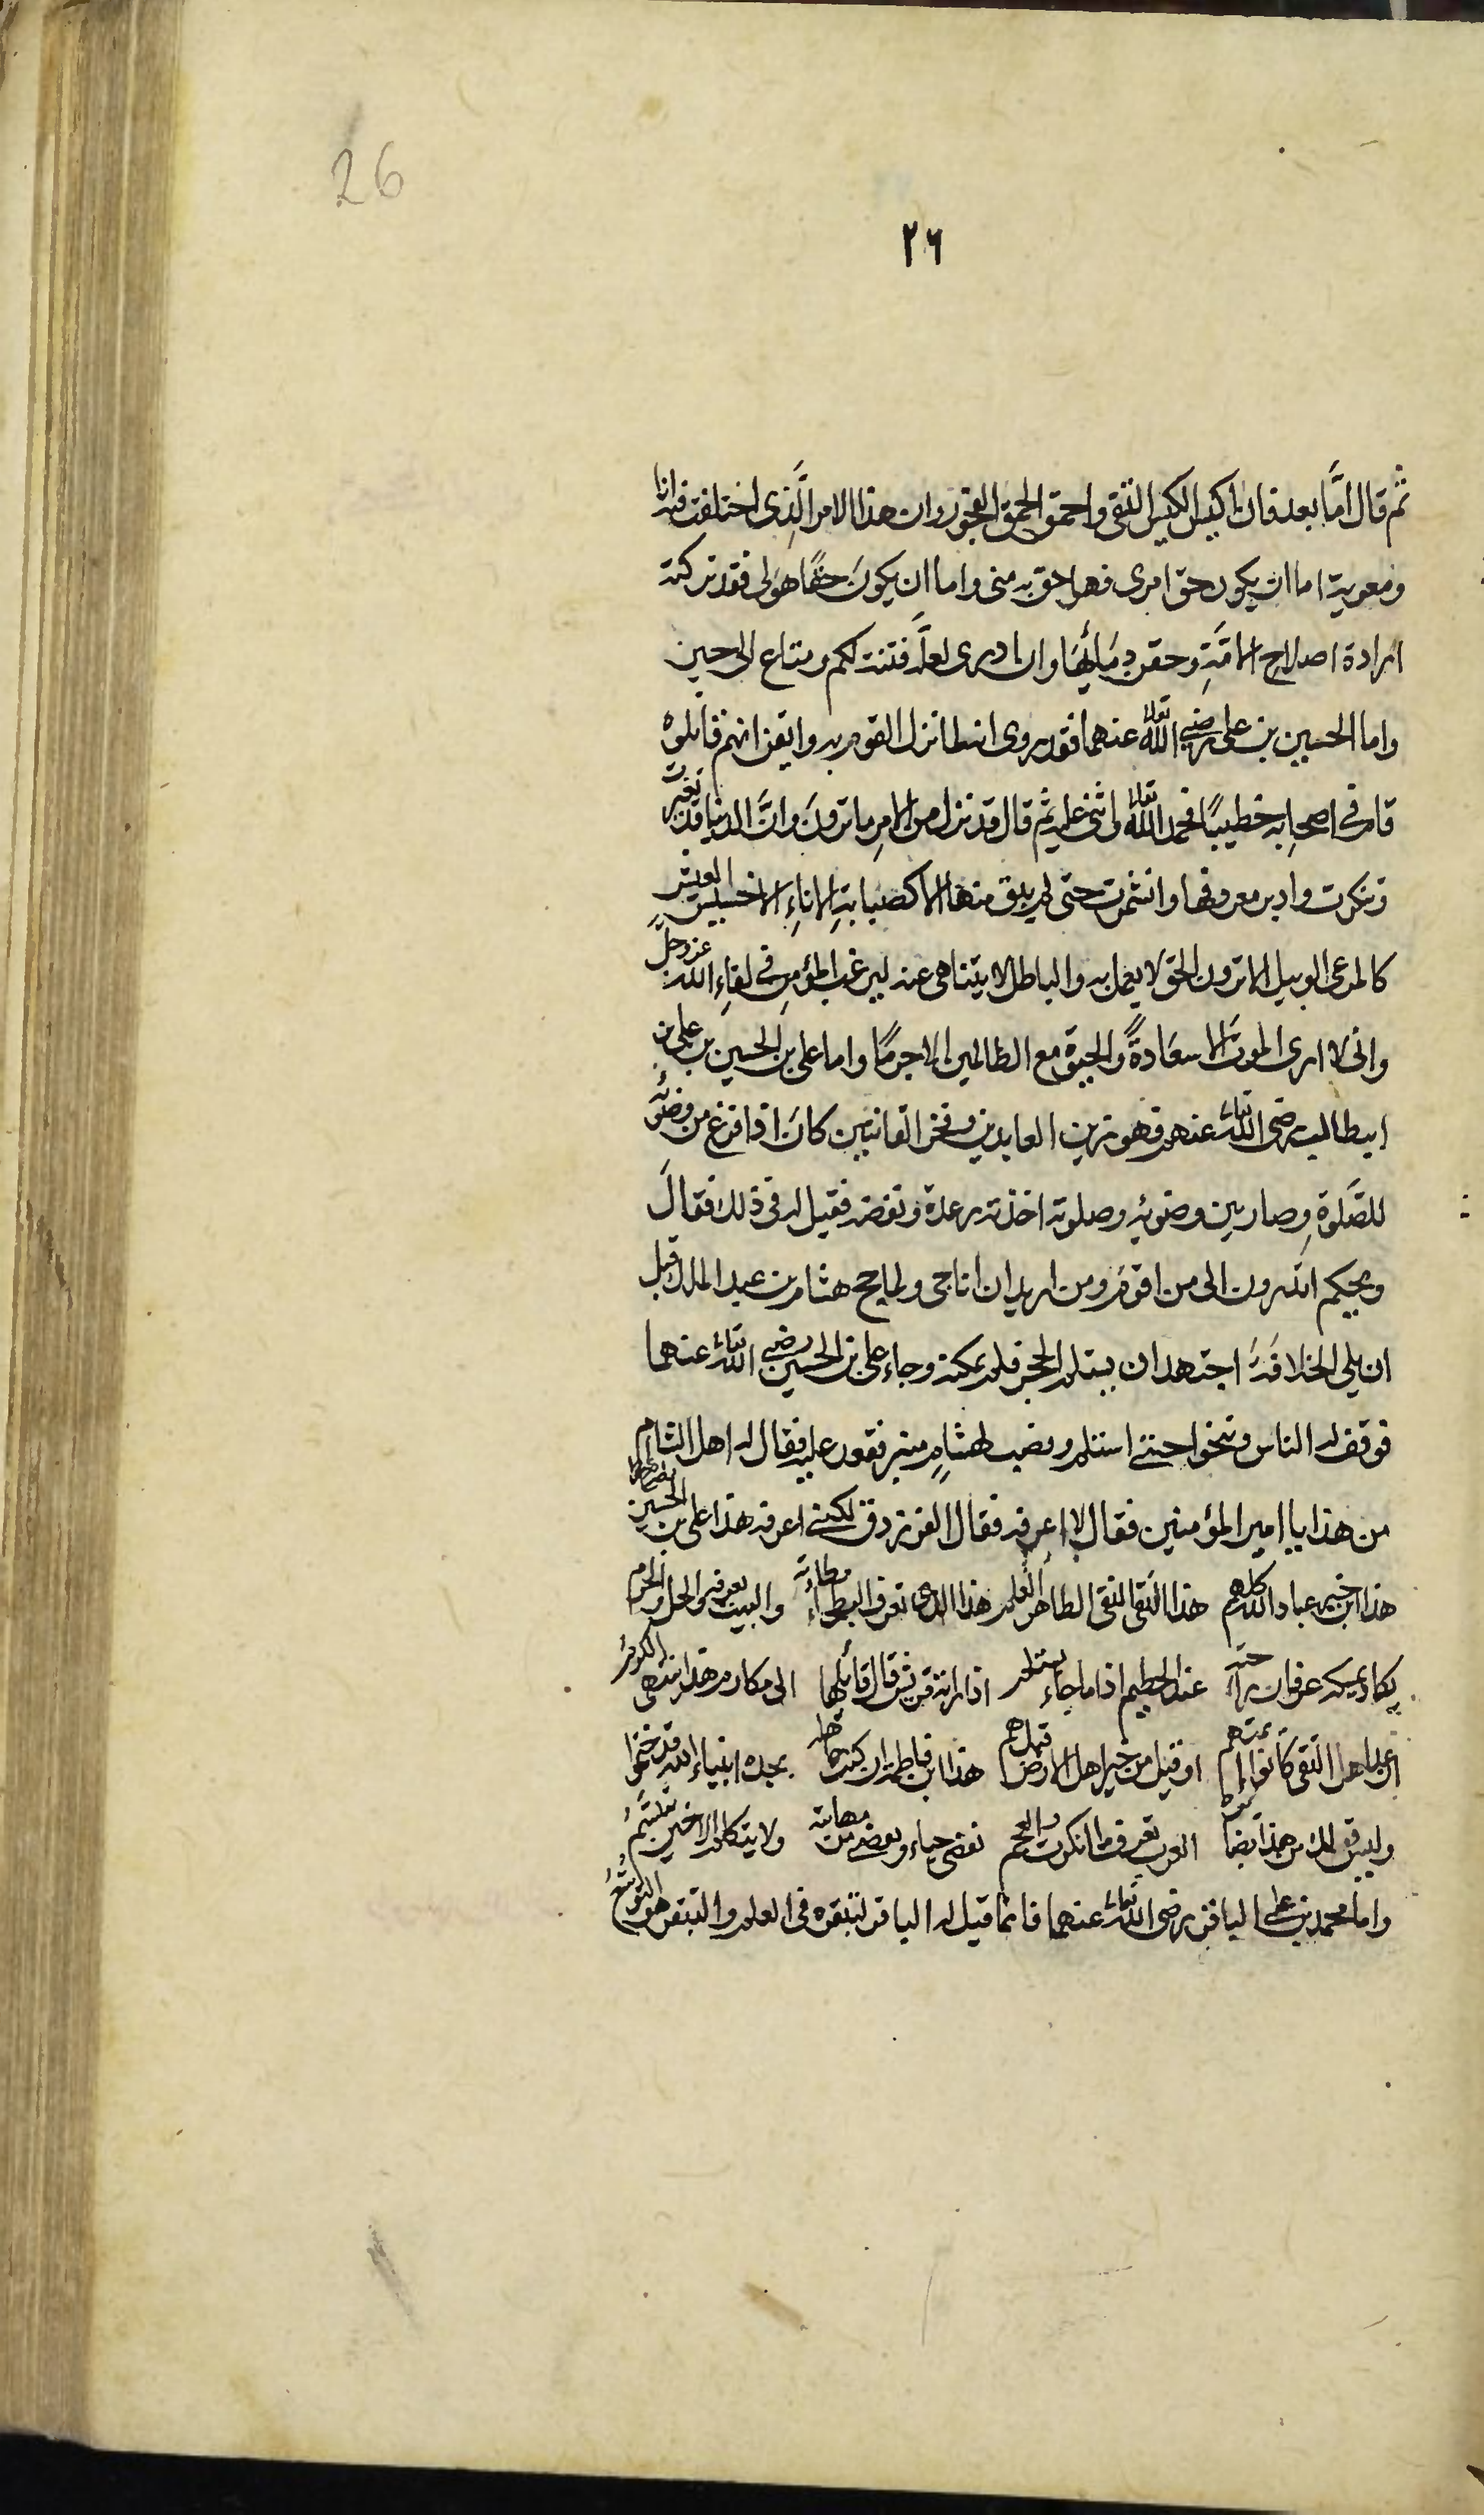 26
٢٦
ثم قال امَّا بعد فان اكيس الكيس التقى واحمق الحمق الفجور وان هذا الامر الَّذِى اختلفت فيه انا
ومعوية اما ان يكون حق امرى فهو احق به منى واما ان يكونَ حقًا هو لى فقد تركته
ارادة اصلاح الامَّةِ وحقن دِمَائِهَا وان ادرى لعلَّه فتنة لكم ومتاع الى حين
واما الحسين بن على رضى اللّٰه تعالى عنهما فقد روى انه لما نزل القوم به وايقن انهم قاتلوه
قام فى اصحابه خطيبًا فحمد اللّٰه تعالى واثنى عليه ثم قال قد نزل من الامرِ ما ترونَ وانَّ الدنيا قد تغيرت
وتنكرت وادبر معروفها وانشمرت حتى لم يبق منها الا كصبابةِ الاناءِ الا خسيس العيش
كالمرعى الوبيل الا ترون الحق لا يعمل به والباطل لا يتناهى عنه ليرغب المؤمن فى لقاءِ اللّٰه عز وجل
وانى لا ارى الموت الا سعَادةً والحيوة مع الظالمين الا جرمًا واما على بن الحسين بن على بن
ابيطالب رضى اللّٰه تعالى عنهم فهو زين العابدين وفخر القانتين كانَ اذا فرغ من وضوئه
للصَّلوةِ وصار بين وضوئِه وصلوته اخذته رعدة ونفضه فقيل له فى ذلك فقالَ
ويحكم اتدرون الى من اقوم ومن اريد ان اناجى ولما حج هشام بن عبد الملك قبل
ان يلى الخلافَةَ اجتهد ان يستلم الحجر فلم يمكنه وجاء على بن الحسين رضى اللّٰه تعالى عنهما
فوقف له الناس وتنحوا حتى استلم ونصب لهشامٍ منبر فقعد عليه فقال له اهل الشام
من هذا يا امير المؤمنين فقال لا اعرفه فقال الفرزدق لكنى اعرفه هذا على بن الحسين رضى اللّٰه عنهما
هذا ابن خير عباد اللّٰه كلهم هذا التقى النقى الطاهر العلم هذا الذى تعرف البطحاءُ وطأته والبيت يعرفه والحل والحرم
يكاد يمسكه عرفان راحته عند الحطيم اذا ما جاء يستلم اذا راته قريش قال قائلها الى مكارم هذا ينتهى الكرم
ان عد اهل التقى كانوا ائمتهم او قيل من خير اهل الارض قيل هم هذا ابن فاطمة ان كنت جاهله بجده انبياء اللّٰه قد ختموا
وليس قولك من هذا بضائره العرب تعرف من انكرت والعجم يغضى حياء ويغضى من مهابته ولا يتكلم الا حين يبتسم
واما محمد بن على الباقر رضى اللّٰه تعالى عنهما فانما قيل له الباقر لتبقره فى العلم والتبقر هو التوسّعُ